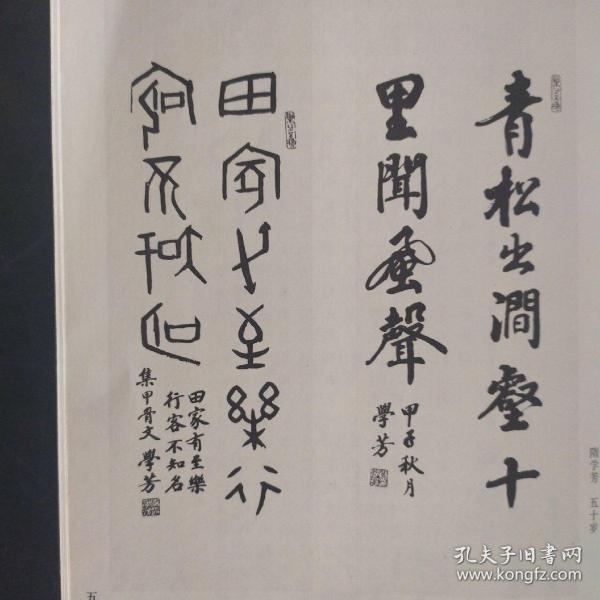 青松出澗壑十
里聞風聲
甲子秋月
學芳
田家有至樂行
客不知名
田家有至樂
行客不知名
集甲骨文 學芳
隋学芳 五十岁
五
孔夫子旧书网
www.kongfz.com